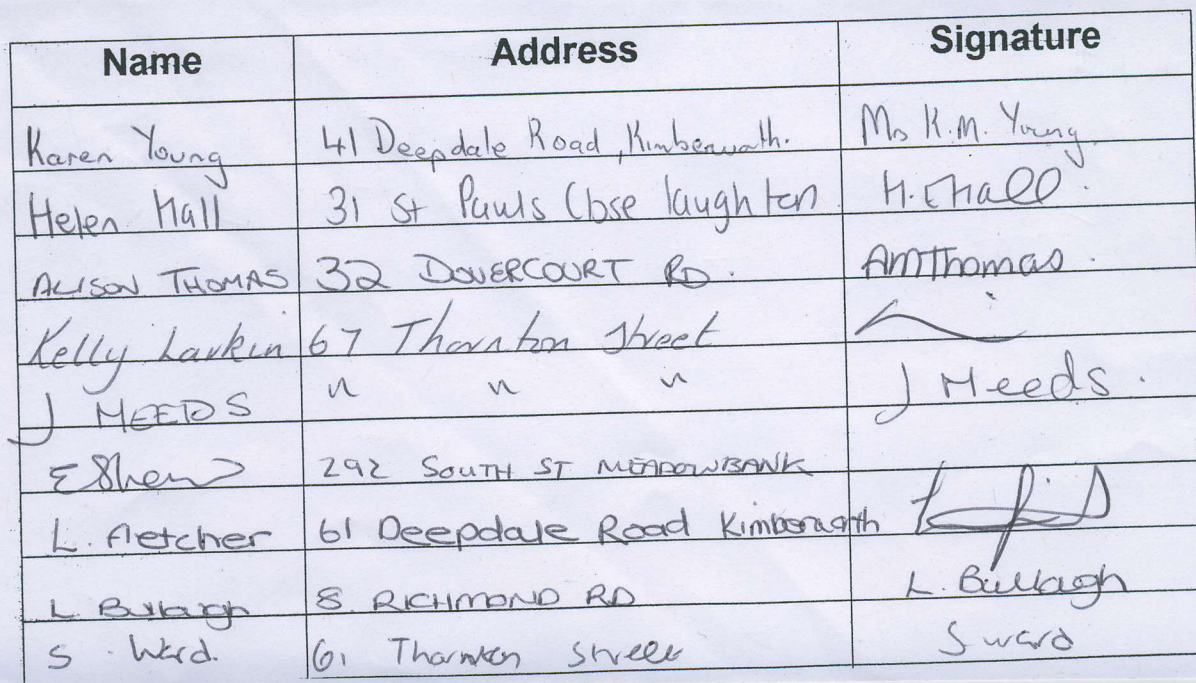 Name Address Signature
Karen Young 41 Deepdale Road, Kimberworth. Ms K.M. Young.
Helen Hall 31 St Pauls Close laughton H. E Hall.
ALISON THOMAS 32 DOVERCOURT RD. AMThomas.
Kelly Larkin 67 Thornton Street
J MEEDS " " " J Meeds.
E Shaw 292 SOUTH ST MEADOWBANK
L. Fletcher 61 Deepdale Road Kimberworth
L Bullagh 8 RICHMOND RD L. Bullagh
S Ward. 61 Thornton Street S Ward